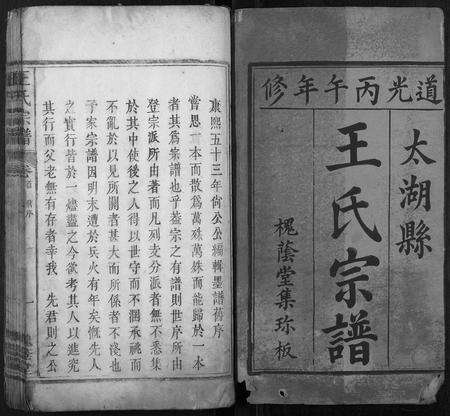 道光丙午年修
太湖縣
王氏宗譜
槐蔭堂集珍板
康熙五十三年尙公公編輯墨譜舊序
嘗思一本而散爲萬殊萬殊而能歸於一本
者其爲宗譜也乎葢宗之有譜則世序所由
登宗派所由著而凡列支分派者無不悉集
於其中使後之人得以世守而不闕承祧而
不亂於以見所關者甚大而所係者不淺也
予家宗譜因明末遭於兵火有年矣慨先人
之實行昔於一燼盡之今欲考其人以進究
其行而父老無有存者幸我 先君則之公
王氏宗譜
卷首
舊序
一